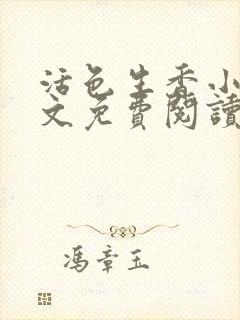 活色生香小
文免費閱讀
馮章玉